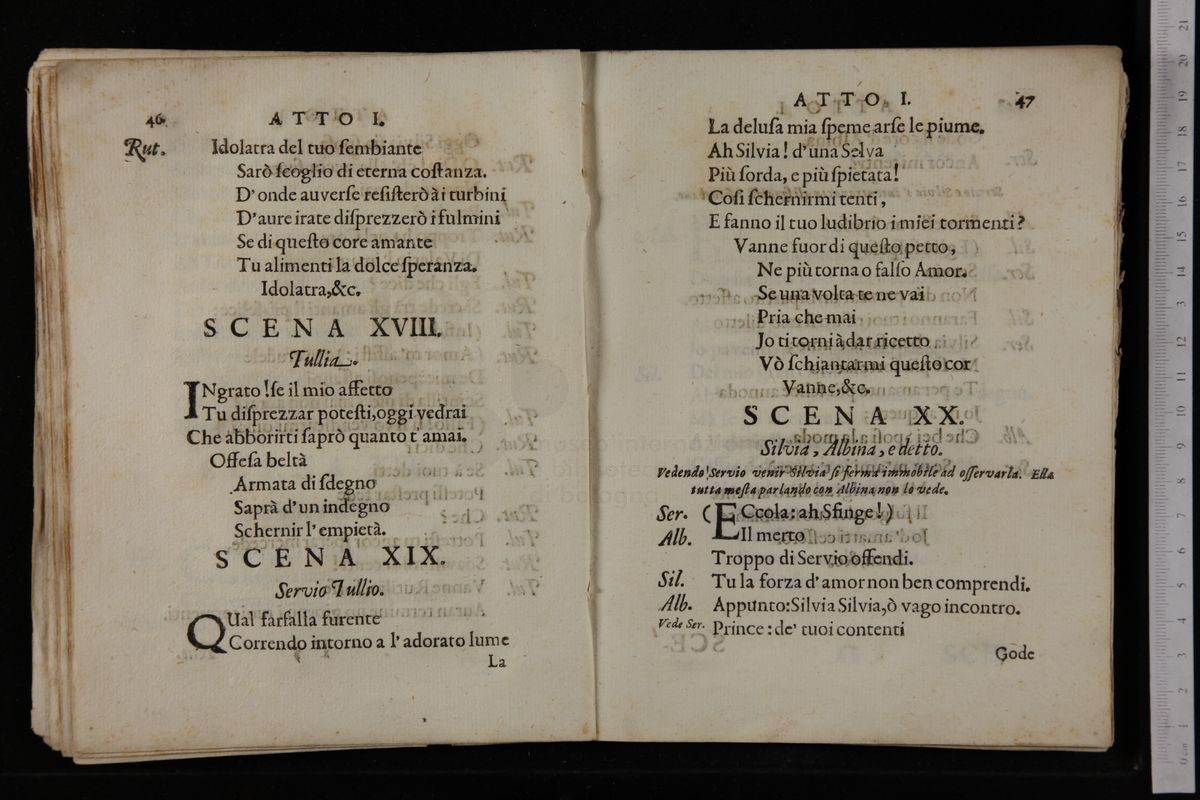 46. ATTO I.
Rut. Idolatra del tuo ſembiante
Sarò ſcoglio di eterna coſtanza.
D'onde auverſe reſiſterò à i turbini
D'aure irate diſprezzerò i fulmini
Se di queſto core amante
Tu alimenti la dolce ſperanza.
Idolatra,&c.
SCENA XVIII.
Tullia.
INgrato !ſe il mio affetto
Tu diſprezzar poteſti,oggi vedrai
Che abborirti ſaprò quanto t'amai.
Offeſa beltà
Armata di ſdegno
Saprà d'un indegno
Schernir l'empietà.
SCENA XIX.
Servio Tullio.
QUal farfalla furente
Correndo intorno a l'adorato lume
La
ATTO I. 47
La deluſa mia ſpeme arſe le piume.
Ah Silvia! d'una Selva
Più ſorda, e più ſpietata!
Coſi ſchernirmi tenti,
E fanno il tuo ludibrio i miei tormenti?
Vanne fuor di queſto petto,
Ne più torna o falſo Amor.
Se una volta te ne vai
Pria che mai
Jo ti torni à dar ricetto
Vò ſchiantarmi queſto cor
Vanne,&c.
SCENA XX.
Silvia, Albina, e detto.
Vedendo Servio venir Silvia ſi ferma immobile ad oſſervarla. Ella
tutta meſta parlando con Albina non lo vede.
Ser. (ECcola: ah Sfinge!)
Alb. Il merto
Troppo di Servio offendi.
Sil. Tu la forza d'amor non ben comprendi.
Alb. Appunto:Silvia Silvia,ò vago incontro.
Vede Ser. Prince: de' tuoi contenti
Gode